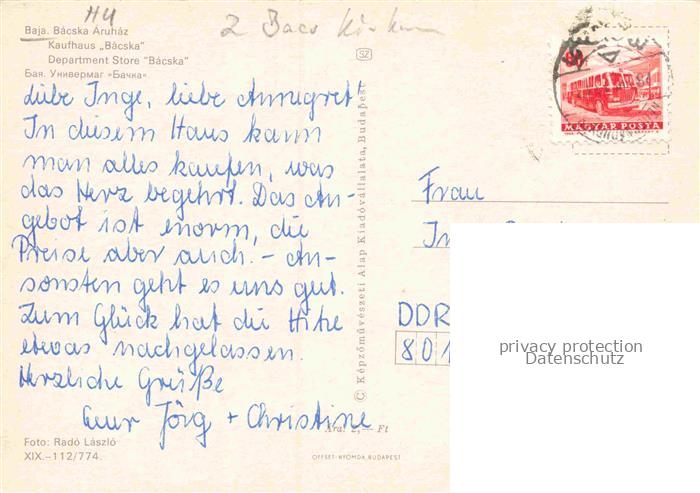 HU
2 Bacs Kiskun
Baja. Bácska Áruház
Kaufhaus „Bácska"
Department Store "Bácska"
Бая. Универмаг «Бачка»
SZ
MAGYAR POSTA
Liebe Inge, liebe Annegret!
In diesem Haus kann
man alles kaufen, was
das Herz begehrt. Das An-
gebot ist enorm, die
Preise aber auch. – An-
sonsten geht es uns gut.
Zum Glück hat die Hitze
etwas nachgelassen.
Herzliche Grüße
Eure Jörg + Christine
Foto: Radó László
XIX.–112/774.
© Képzőművészeti Alap Kiadóvállalata, Budapest
Ára: 2,— Ft
OFFSET-NYOMDA, BUDAPEST
Frau
DDR
801
privacy protection
Datenschutz